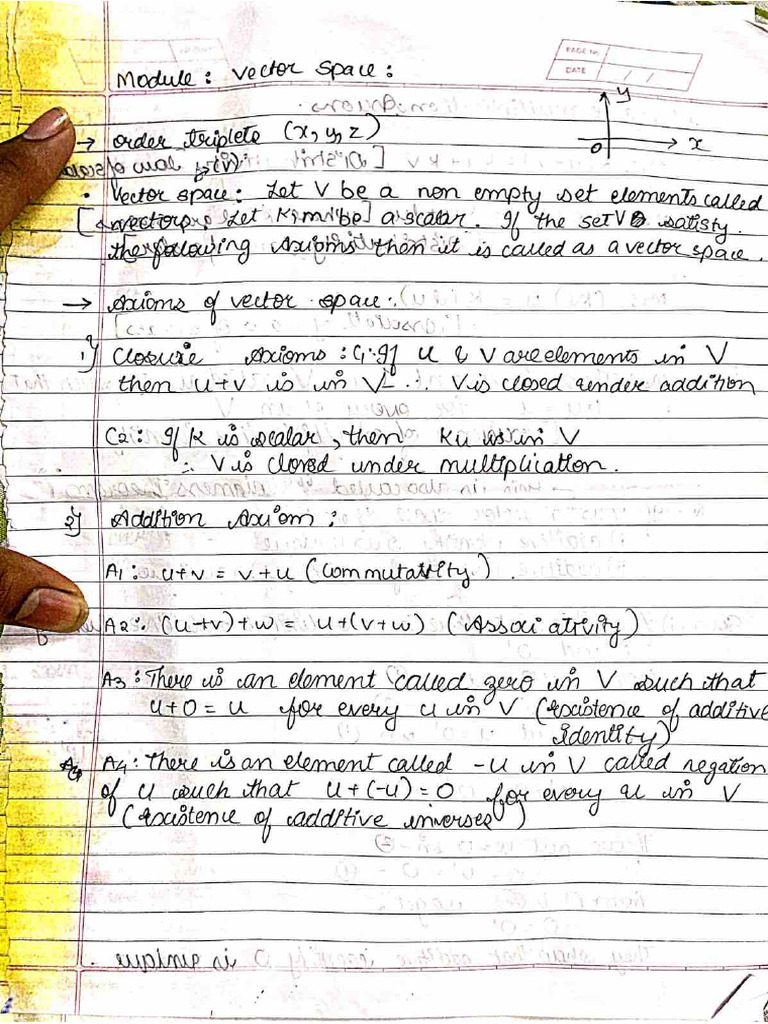 PAGE No.
DATE / /
Module: Vector Space:
y
→ order triplete (x, y, z)
x
0
• Vector space: Let V be a non empty set elements called
[vectors, Let K, m be] a scalar. If the set V satisty
the following Axioms then it is called as a vector space.
→ Axioms of vector space:
1) Closure Axioms: C1: If u & V are elements in V
then u+v is in V ∴ V is closed under addition
C2: If K is scalar, then Ku is in V
∴ V is closed under multiplication.
2) Addition Axiom:
A1: u+v = v+u (Commutativity).
A2: (u+v)+w = u+(v+w) (Associativity)
A3: There is an element called zero in V such that
u+0 = u for every u in V (Existence of additive
identity)
A4: There is an element called -u in V called negation
of u such that u+(-u)=0 for every u in V
(Existence of additive inverses)